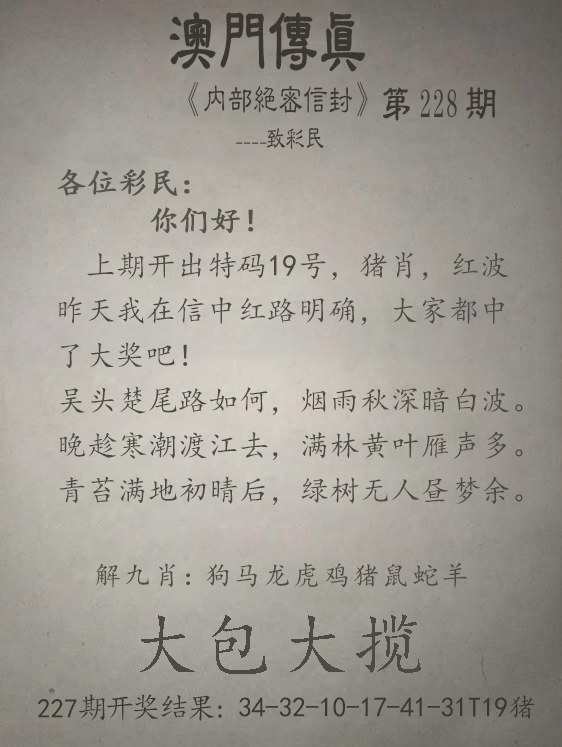 澳門傳眞
《内部絕密信封》第228期
----致彩民
各位彩民:
你们好!
上期开出特码19号，猪肖，红波
昨天我在信中红路明确，大家都中
了大奖吧!
吴头楚尾路如何，烟雨秋深暗白波。
晚趁寒潮渡江去，满林黄叶雁声多。
青苔满地初晴后，绿树无人昼梦余。
解九肖:狗马龙虎鸡猪鼠蛇羊
大包大揽
227期开奖结果: 34-32-10-17-41-31T19猪